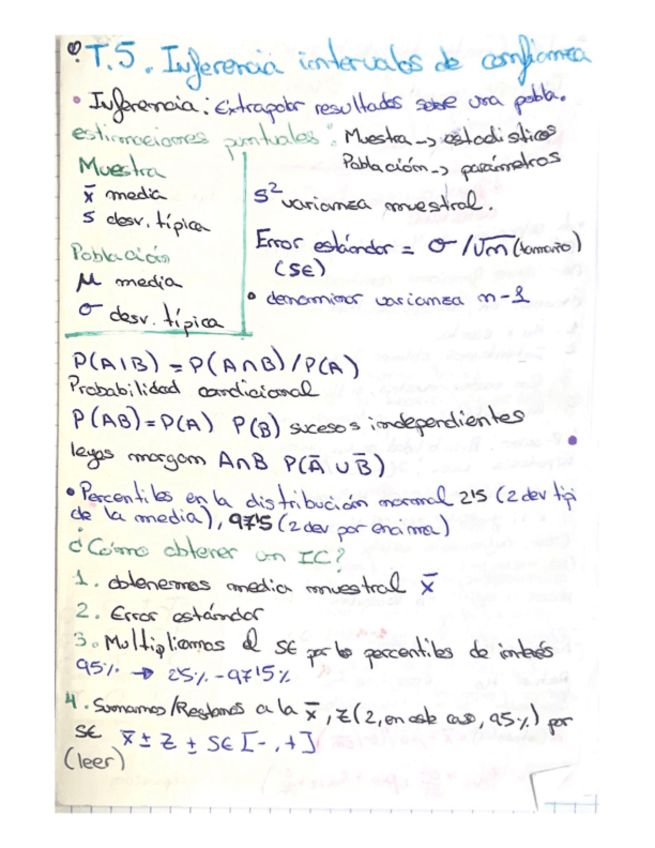 T.5. Inferencia intervalos de confianza
• Inferencia: Extrapolar resultados sobre una pobla.
estimaciones puntuales: Muestra -> estadísticos
Población -> parámetros
Muestra
x̄ media
s desv. típica
Población
μ media
σ desv. típica
S² varianza muestral.
Error estándar = σ /√n (tamaño)
(SE)
• denominar varianza n-1
P(A|B) = P(A∩B)/P(A)
Probabilidad condicional
P(AB)=P(A) P(B) sucesos independientes
leyes morgam A∩B P(Ā ∪ B̄)
• Percentiles en la distribución normal 2'5 (2 dev tipi
de la media), 97'5 (2 dev por encima)
¿Cómo obtener un IC?
1. obtenemos media muestral x̄
2. Error estándar
3. Multipliamos el SE por los percentiles de interés
95% → 2'5% - 97'5%
4. Sumamos/Restamos a la x̄, z(2, en este caso, 95%) por
SE x̄ ± z ± SE [-, +]
(leer)